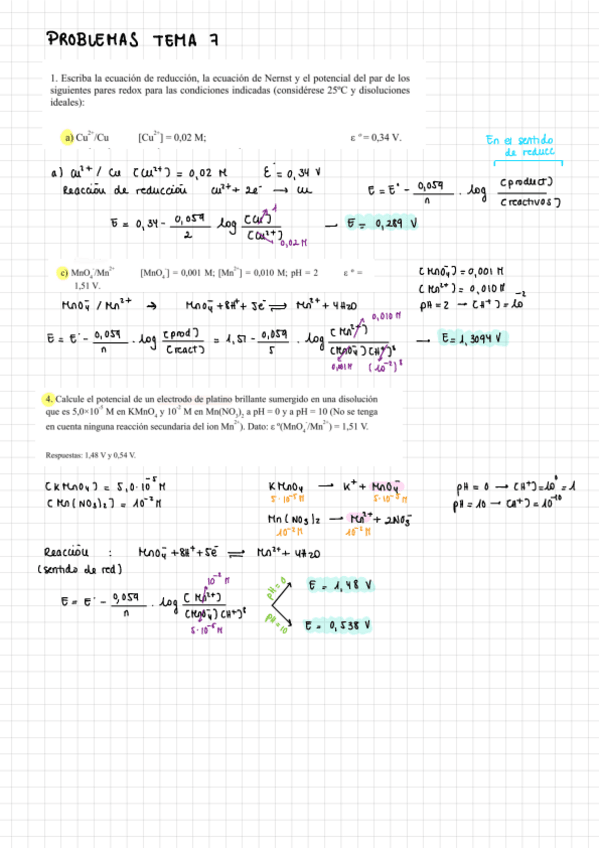 PROBLEMAS TEMA 7
1. Escriba la ecuación de reducción, la ecuación de Nernst y el potencial del par de los
siguientes pares redox para las condiciones indicadas (considérese 25ºC y disoluciones
ideales):
a) Cu²⁺/Cu [Cu²⁺] = 0,02 M; ε º= 0,34 V.
En el sentido
de reducc
a) Cu²⁺ / Cu [Cu²⁺] = 0,02 M E° = 0,34 V
Reacción de reducción Cu²⁺ + 2e⁻ → Cu
E = E° - 0,059/n · log [product]/[reactivos]
E = 0,34 - 0,059/2 log [Cu]/[Cu²⁺] → E = 0,289 V
1
0,02 M
c) MnO₄⁻/Mn²⁺ [MnO₄⁻] = 0,001 M; [Mn²⁺] = 0,010 M; pH = 2 ε º =
1,51 V.
[MnO₄⁻] = 0,001 M
[Mn²⁺] = 0,010 M
pH = 2 → [H⁺] = 10⁻²
MnO₄⁻ / Mn²⁺ → MnO₄⁻ + 8H⁺ + 5e⁻ ⇌ Mn²⁺ + 4H2O
0,010 M
E = E° - 0,059/n · log [prod]/[react] = 1,51 - 0,059/5 · log [Mn²⁺]/[MnO₄⁻][H⁺]⁸ → E = 1,3094 V
0,001 M (10⁻²)⁸
4. Calcule el potencial de un electrodo de platino brillante sumergido en una disolución
que es 5,0×10⁻⁵ M en KMnO₄ y 10⁻² M en Mn(NO₃)₂ a pH = 0 y a pH = 10 (No se tenga
en cuenta ninguna reacción secundaria del ion Mn²⁺). Dato: ε º(MnO₄⁻/Mn²⁺) = 1,51 V.
Respuestas: 1,48 V y 0,54 V.
[KMnO₄] = 5,0·10⁻⁵ M
[Mn(NO₃)₂] = 10⁻² M
KMnO₄ → K⁺ + MnO₄⁻
5·10⁻⁵ M 5·10⁻⁵ M
Mn(NO₃)₂ → Mn²⁺ + 2NO₃⁻
10⁻² M 10⁻² M
pH = 0 → [H⁺] = 10⁰ = 1
pH = 10 → [H⁺] = 10⁻¹⁰
Reacción : MnO₄⁻ + 8H⁺ + 5e⁻ ⇌ Mn²⁺ + 4H2O
(sentido de red)
10⁻² M
E = E° - 0,059/n · log [Mn²⁺]/[MnO₄⁻][H⁺]⁸
5·10⁻⁵ M
pH = 0
E = 1,48 V
pH = 10
E = 0,538 V